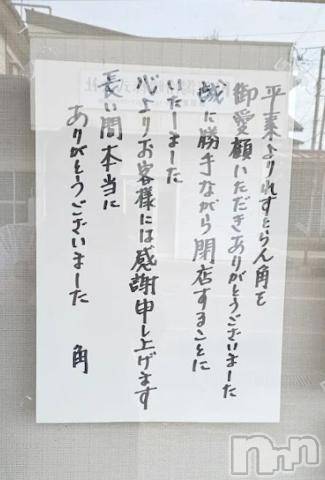 平素よりれすとらん角を
御愛顧いただきありがとうございました
誠に勝手ながら閉店することに
いたしました
心よりお客様には感謝申し上げます
長い間本当に
ありがとうございました
角